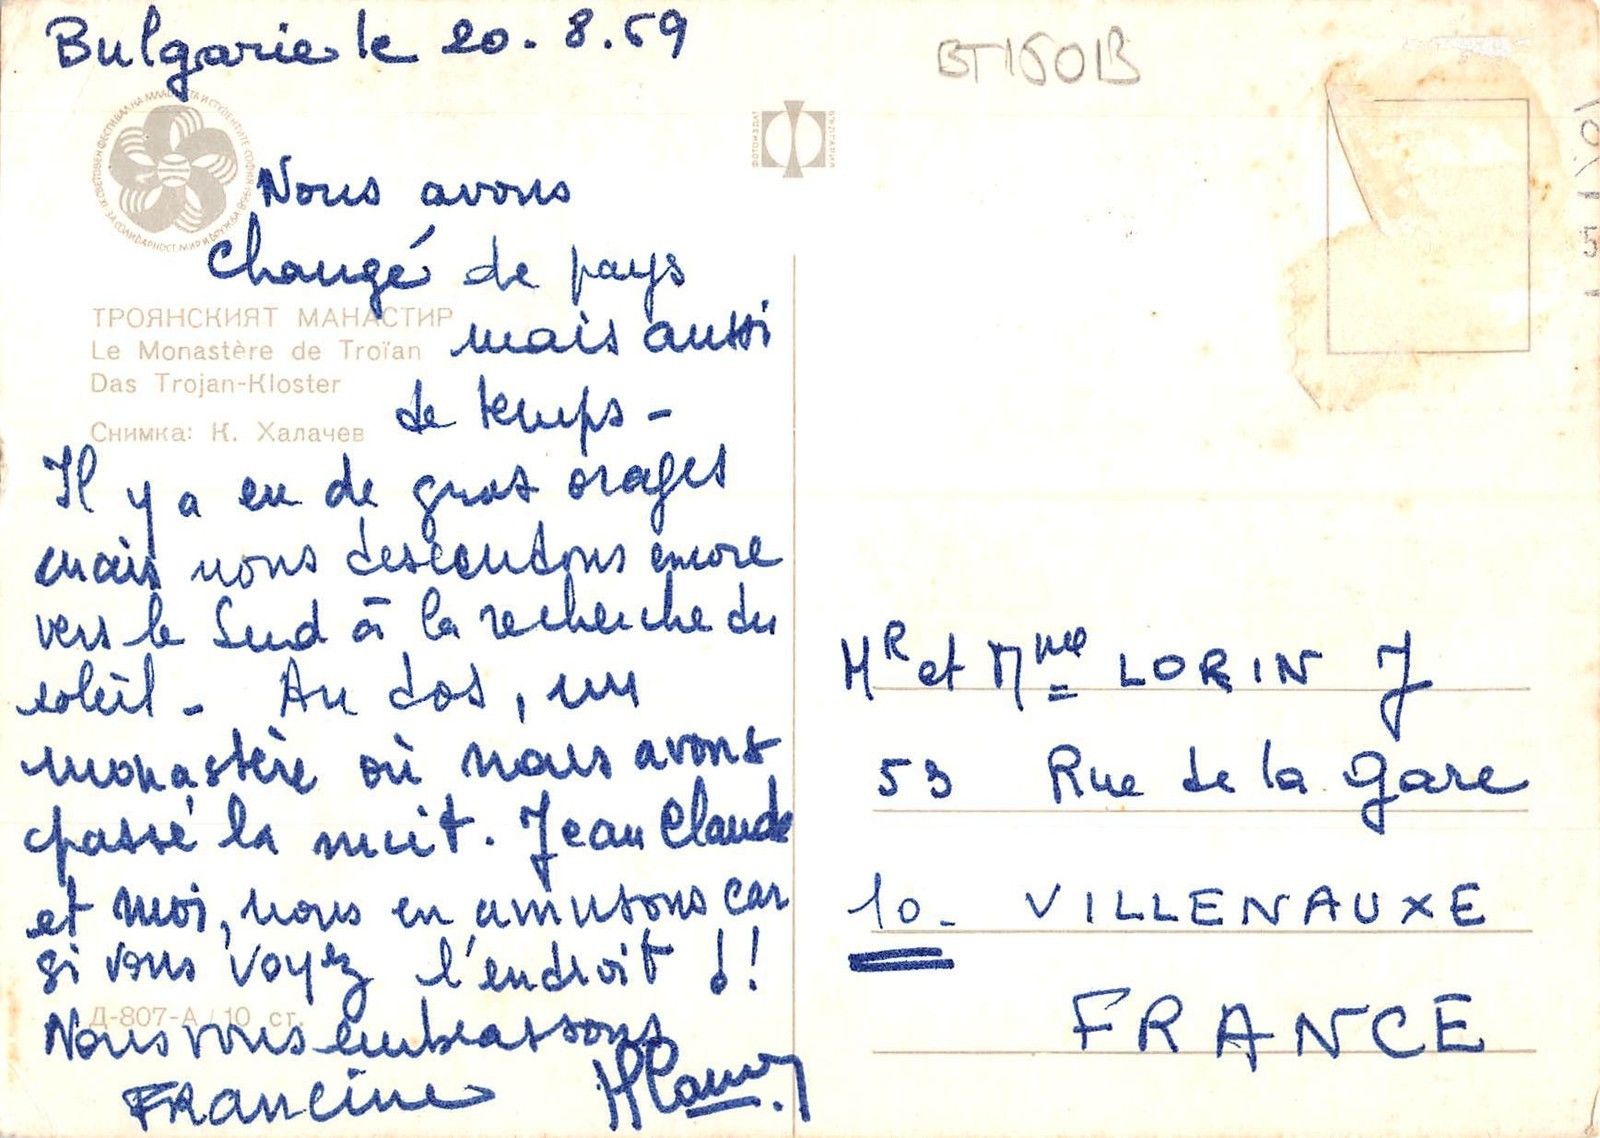 Bulgarie le 20.8.69
BT1501B
IX СВЕТОВЕН ФЕСТИВАЛ НА МЛАДЕЖТА И СТУДЕНТИТЕ-СОФИЯ 1968 ЗА СОЛИДАРНОСТ МИР И ДРУЖБА
ФОТОИЗДАТ
БЪЛГАРИЯ
Nous avons
changé de pays
mais aussi
de temps -
ТРОЯНСКИЯТ МАНАСТИР
Le Monastère de Troïan
Das Trojan-Kloster
Снимка: К. Халачев
Il y a eu de gros orages
mais nous descendons encore
vers le Sud à la recherche du
soleil - Au dos, un
monastère où nous avons
passé la nuit. Jean Claude
et moi, nous en amusons car
si vous voyez l'endroit !
Д-807-А / 10 ст.
Nous vous embrassons
Francine
Mr et Mme LORIN J
53 Rue de la Gare
10 - VILLENAUXE
FRANCE